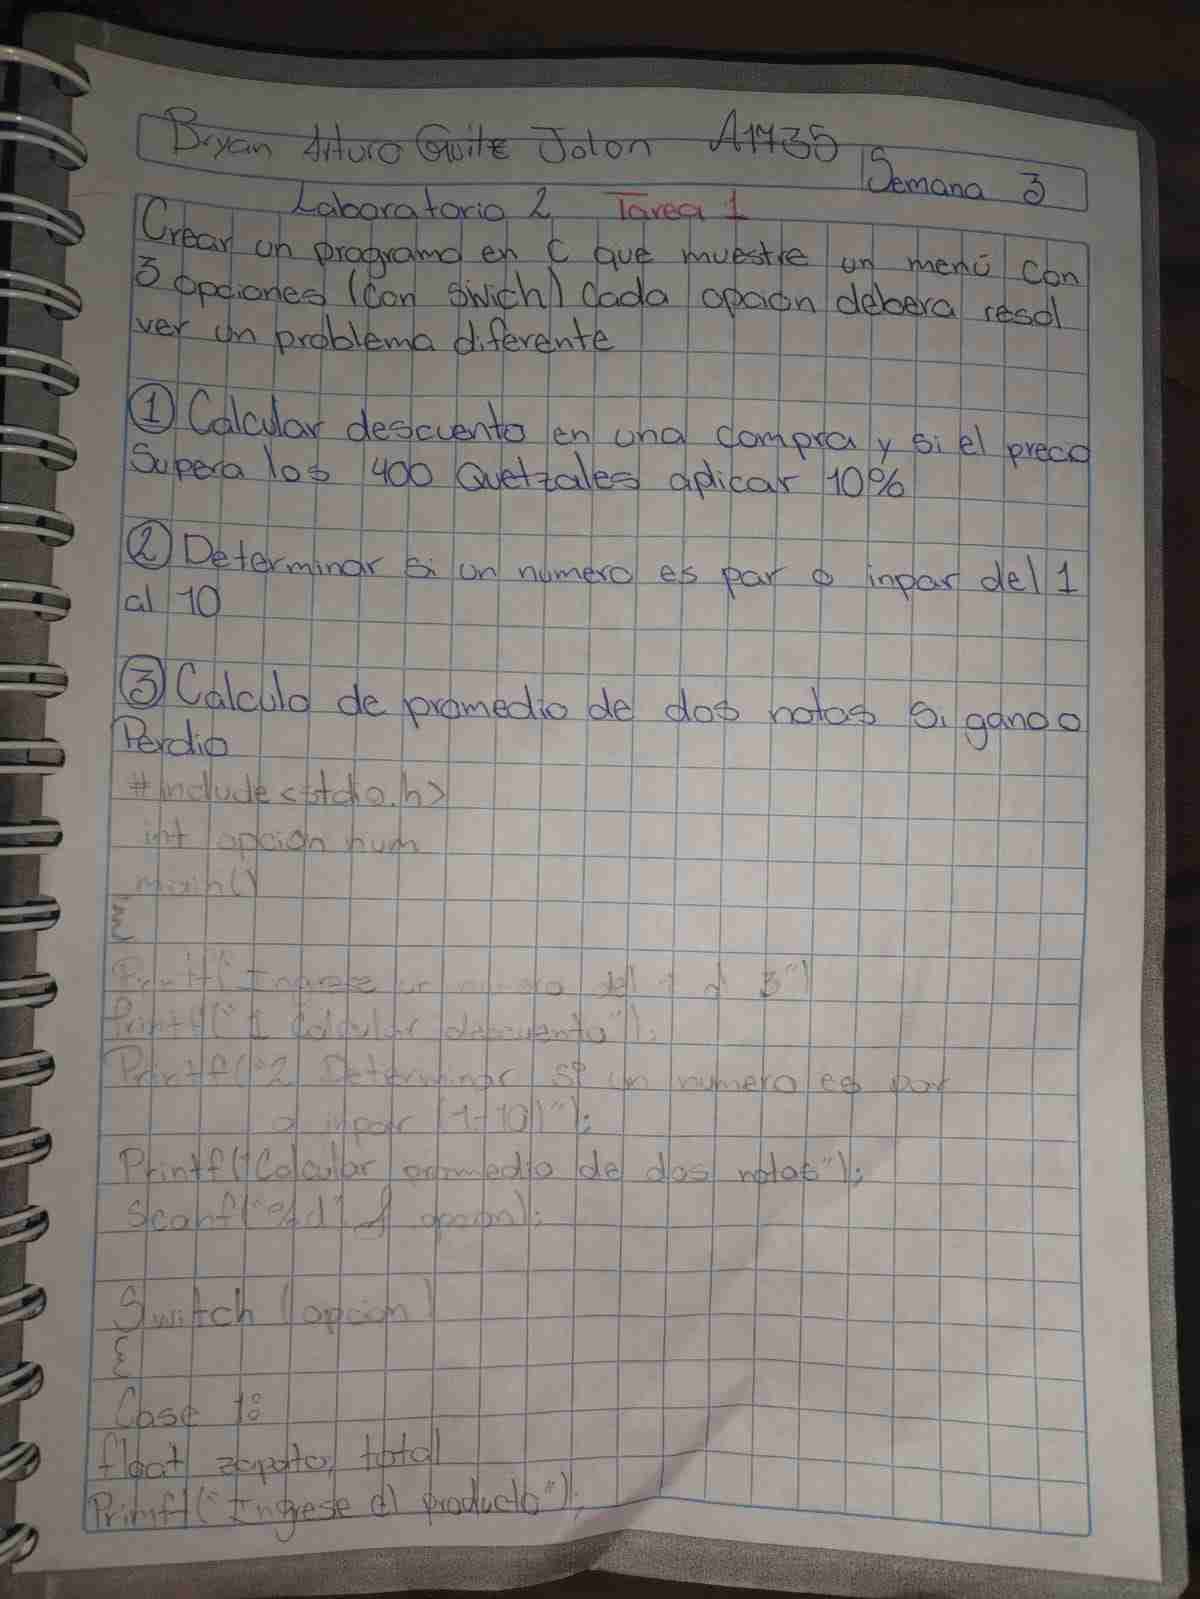 Bryan Arturo Guitz Jolon A1735
Semana 3
Laboratorio 2 Tarea 1
Crear un programa en C que muestre un menú con
3 opciones (con swich) cada opcion debera resol
ver un problema diferente
① Calcular descuento en una compra y si el preco
Supera los 400 Quetzales aplicar 10%
② Determinar si un numero es par o inpar del 1
al 10
③ Calculo de promedio de dos notas si gano o
Perdio
#include <stdio.h>
int opcion num
main()
{
Printf("Ingrese un numero del 1 al 3")
Printf("1 Calcular descuento");
Printf("2 Determinar si un numero es par
o inpar (1-10)");
Printf("Calcular promedio de dos notas");
Scanf("%d", & opcion);
Switch (opcion)
{
Case 1:
float zapato, total
Printf("Ingrese el producto");